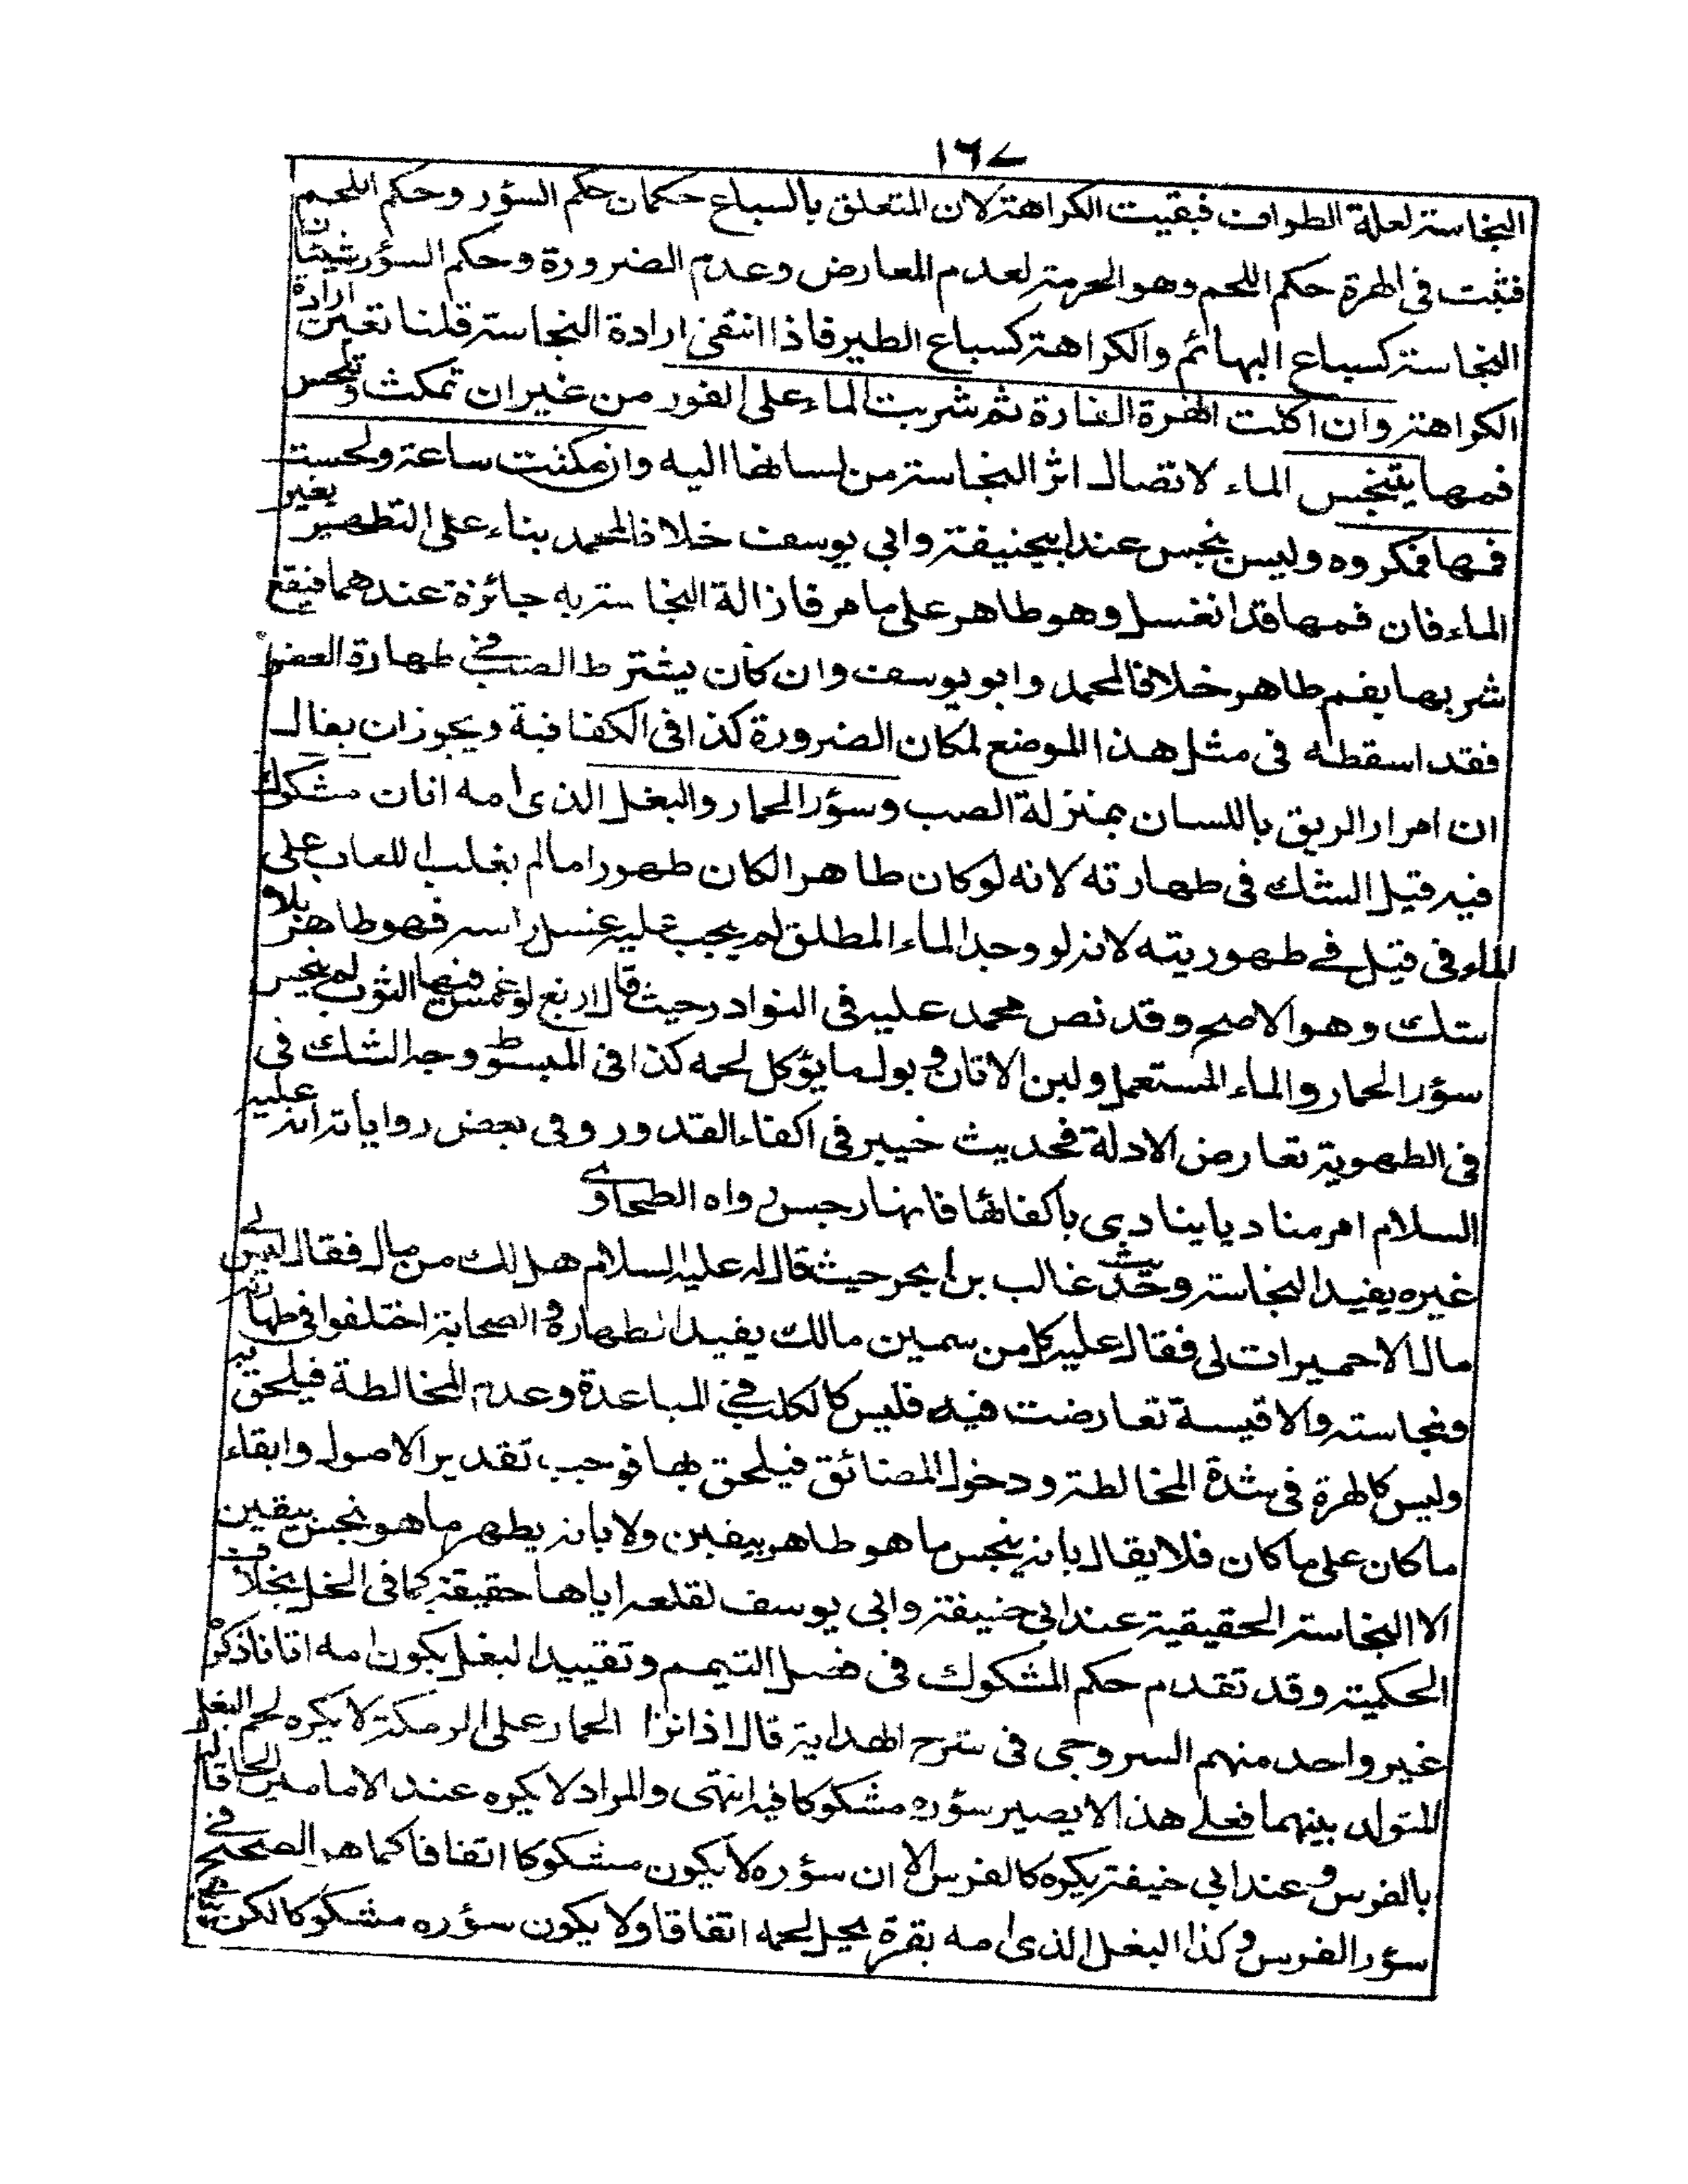 ١٦٧
النجاسة لعلة الطواف فبقيت الكراهة لان المتعلق بالسباع حكمان حكم السؤر وحكم اللحم
فثبت فى الهرة حكم اللحم وهو الحرمة لعدم المعارض وعدم الضرورة وحكم السؤر شيئان
النجاسة كسباع البهائم والكراهة كسباع الطير فاذا انتفى ارادة النجاسة قلنا تعين ارادة
الكراهة وان اكلت الهرة الفارة ثم شربت الماء على الفور من غير ان تمكث وتلحس
فمها يتنجس الماء لاتصال اثر النجاسة من لسانها اليه وان مكثت ساعة ولحست
فمها فمكروه وليس بنجس عند ابيحنيفة وابى يوسف خلافا لمحمد بناء على التطهير بغير
الماء فان فمها قد انغسل وهو طاهر على ما مر فازالة النجاسة به جائزة عندهما فيقع
شربها بفم طاهر خلافا لمحمد وابو يوسف وان كان يشترط الصب فى طهارة العضو
فقد اسقطه فى مثل هذا الموضع لمكان الضرورة كذا فى الكفافية ويجوز ان يقال
ان امرار الريق باللسان بمنزلة الصب وسؤر الحمار والبغل الذى امه اتان مشكوك
فيه قيل الشك فى طهارته لانه لو كان طاهرا لكان طهورا مالم يغلب اللعاب على
الماء فى قيل فى طهوريته لانه لو وجد الماء المطلق لم يجب عليه غسل راسه فهو طاهر بلا
شك وهو الاصح وقد نص محمد عليه فى النوادر حيث قال اربع لو غمس فيها الثوب لم ينجس
سؤر الحمار والماء المستعمل ولبن الاتان وبول ما يؤكل لحمه كذا فى المبسوط وجه الشك فى
فى الطهوية تعارض الادلة فحديث خيبر فى اكفاء القدور وفى بعض رواياته انه عليه
السلام امر مناديا ينادى باكفائها فانها رجس رواه الطحاوى
غيره يفيد النجاسة وحديث غالب بن ابجر حيث قال له عليه السلام هل لك من مال فقال ليس لى
مال الا حميرات لى فقال عليه كل من سمين مالك يفيد الطهارة والصحابة اختلفوا فى طهارته
ونجاسته والاقيسة تعارضت فيه فليس كالكلب فى المباعدة وعدم المخالطة فيلحق به
وليس كالهرة فى شدة المخالطة ودخول المضائق فيلحق بها فوجب تقدير الاصول وابقاء
ما كان على ما كان فلا يقال بانه ينجس ما هو طاهر بيقين ولا بانه يطهر ما هو نجس بيقين
الا النجاسة الحقيقية عند ابى حنيفة وابى يوسف لقلعه اياها حقيقة كما فى الخل بخلاف
الحكمية وقد تقدم حكم المشكوك فى فصل التيمم وتقييد البغل بكون امه اتانا ذكره
غير واحد منهم السروجى فى شرح الهداية قال اذا نزا الحمار على الرمكة لا يكره لحم البغل
المتولد بينهما فعلى هذا لا يصير سؤره مشكوكا فيه انتهى والمراد لا يكره عند الامامين الحاقا له
بالفرس وعند ابي حنيفة يكره كالفرس الا ان سؤره لا يكون مشكوكا اتفاقا كما هو الصحيح فى
سؤر الفرس وكذا البغل الذى امه بقرة يحل لحمه اتفاقا ولا يكون سؤره مشكوكا لكن